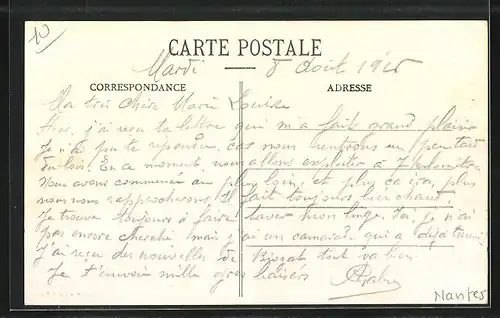 CARTE POSTALE
Mardi 8 Août 191
CORRESPONDANCE
ADRESSE
Ma très chère Marie Louise
Hier, j'ai reçu ta lettre qui m'a fait grand plaisir
Je n'ai pu te répondre, car nous rentrions un peu tard
du bois. En ce moment, nous allons exploiter à 7
Nous avons commencé au plus loin et plus ça ira, plus
nous nous rapprocherons. Il fait toujours bien chaud
Je trouve toujours à faire laver mon linge. Ici, je n'ai
pas encore cherché mais j'ai un camarade qui a déjà trouvé
J'ai reçu des nouvelles de tout va bien.
Je t'envoie mille gros baisers
Nantes